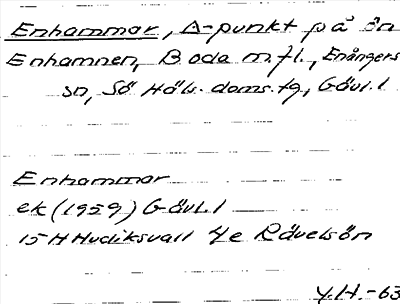 Enhammar, Δ-punkt på ön
Enhamnen, Boda m.fl., Enångers
sn, Sö Häls. doms.tg, Gävl. l
Enhammar
ek (1959) Gävl. l
15 H Hudiksvall 4e Rävelsön
Y.H. -63